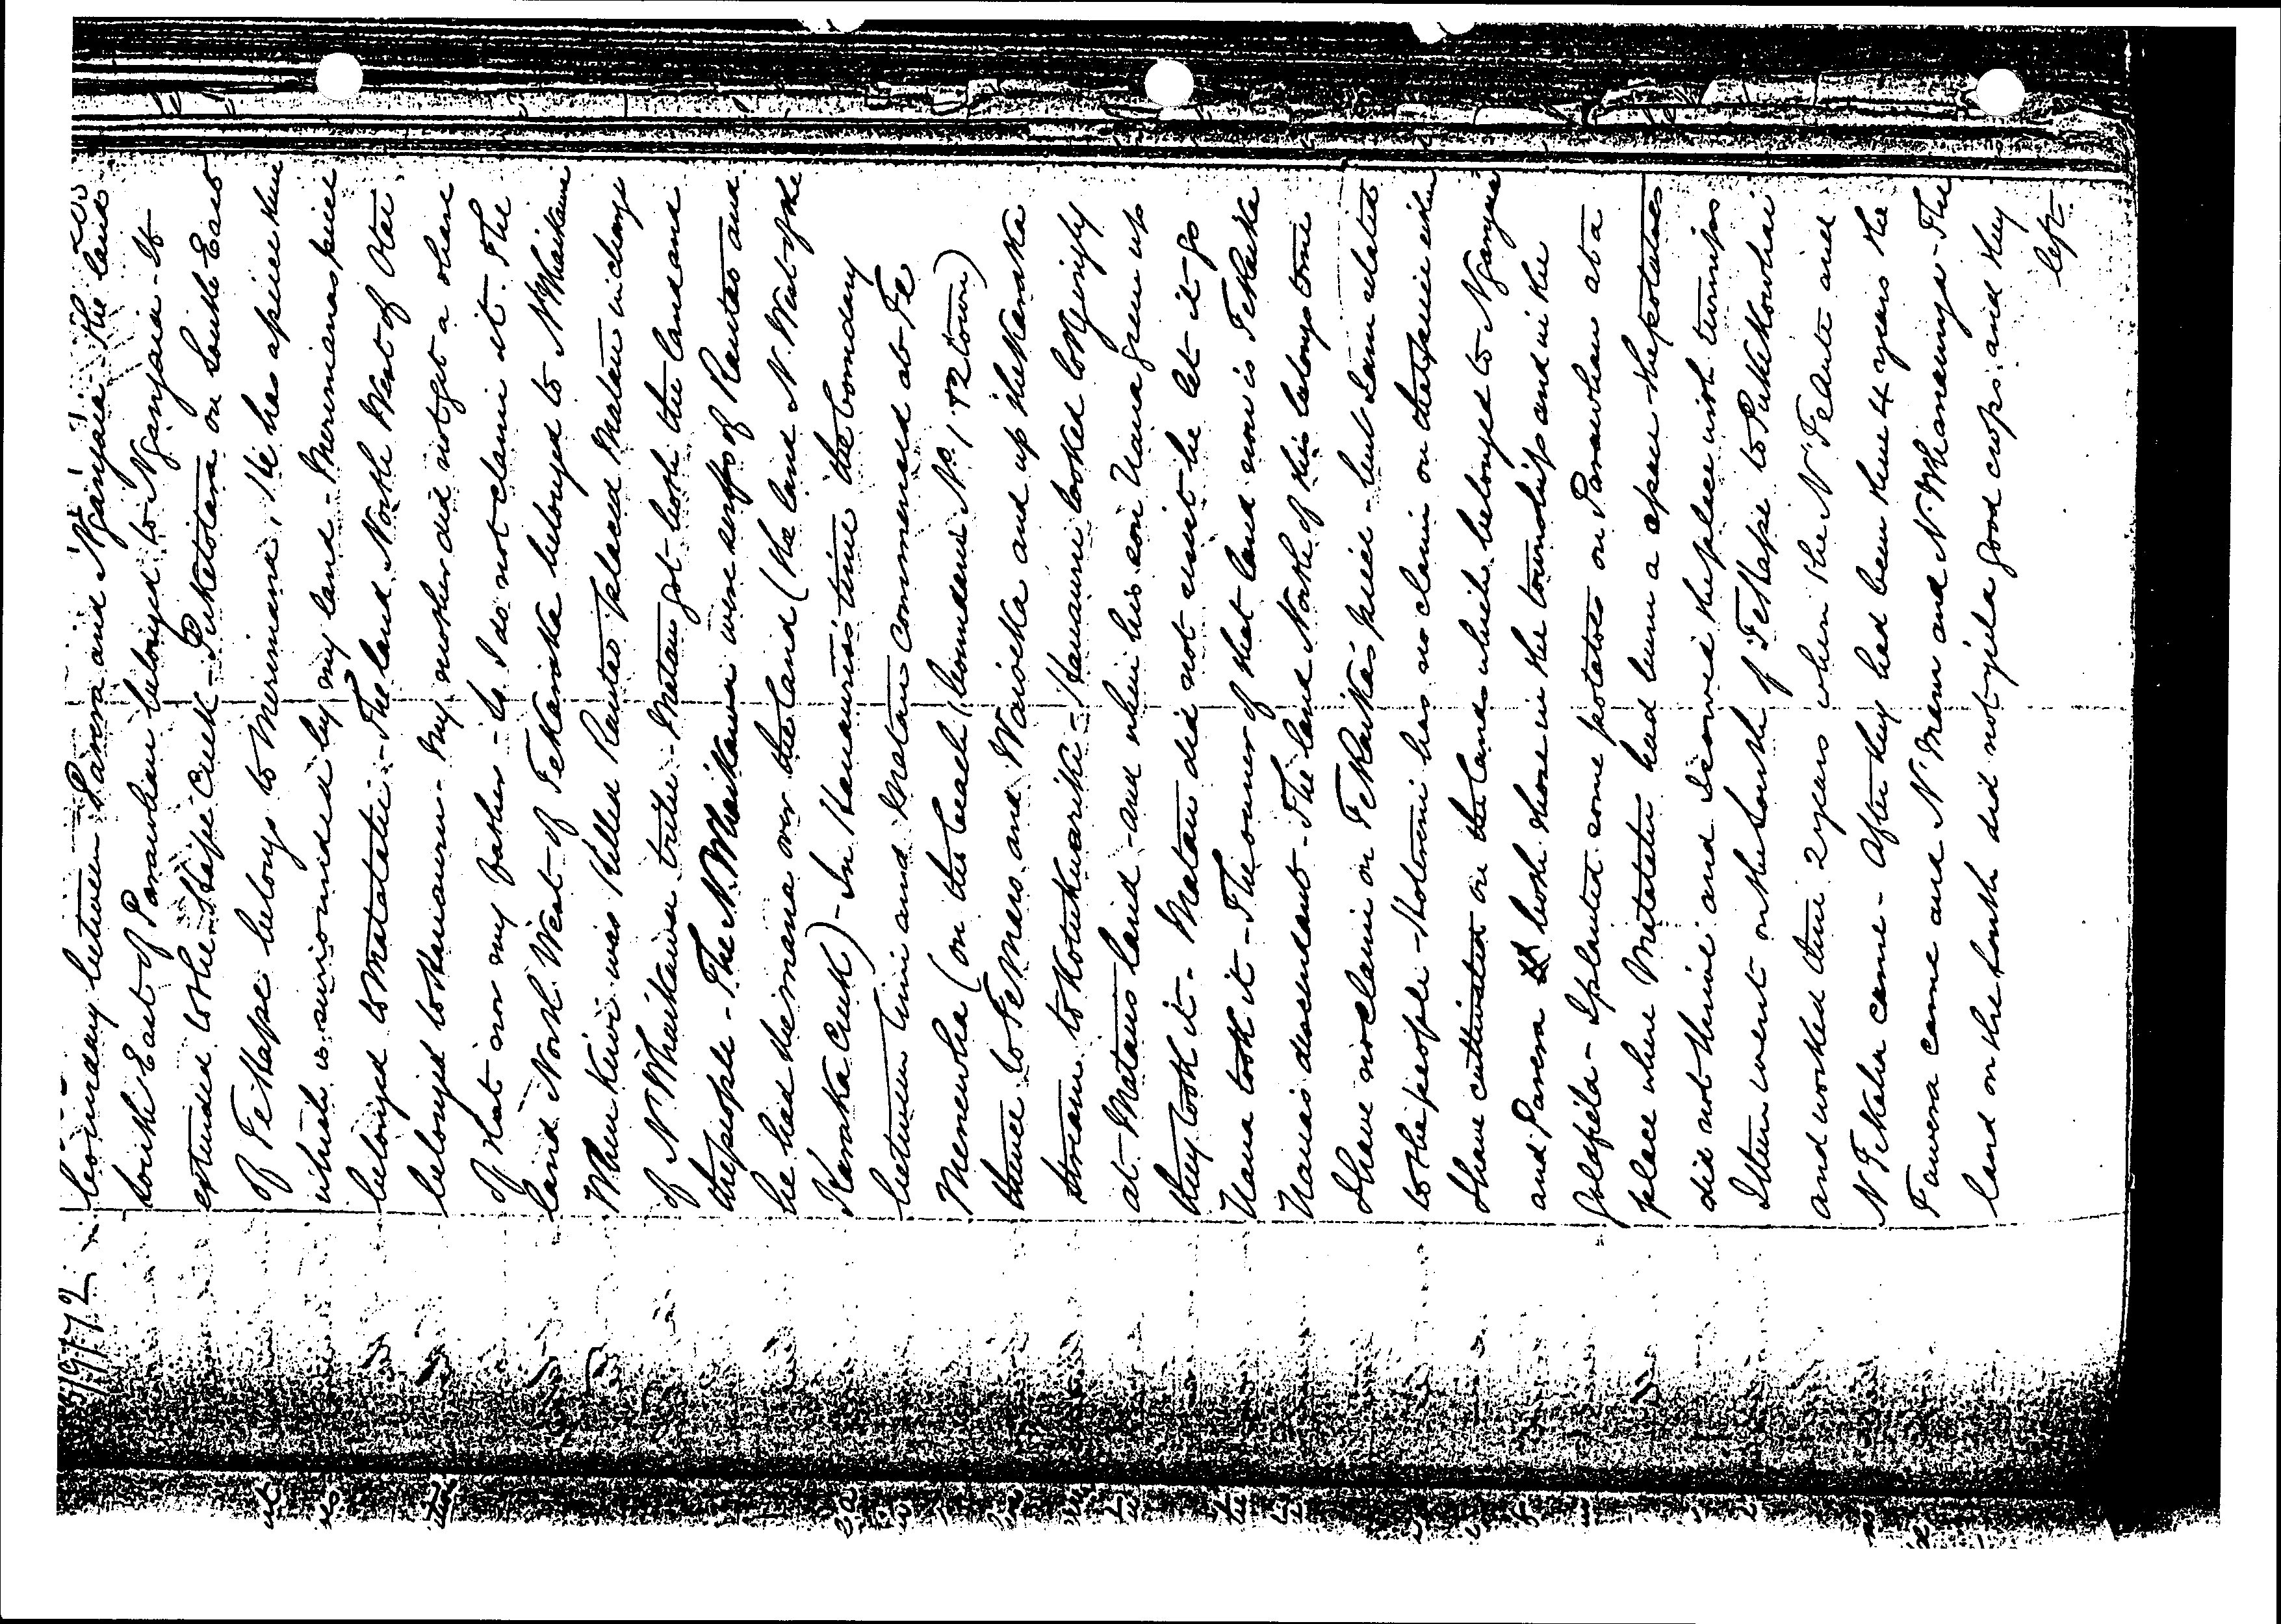 boundary between Parera and Ngangaia - the land
South East of Parawhau belonged to Ngangaia - It
extended to the Hape Creek - Puketotara on South East
of Te Hape belongs to Merimana, He has a piece there
which is surrounded by my land - Merimanas piece
belonged to Matatatu - The land North West of
belonged to Hauauru - my mother did not get a share
of that nor my father - so I do not claim it. The
land North West of Te Karaka belonged to N' Whaikawa
When Kiwi was killed Rautao placed Matau in charge
of N' Whaikawa tribe - Matau got both the land and
the people - The N. Whaikawa were serfs of Rautao and
he had the mana over the land (the land N. West of the
Karaka Creek) - In Hauauru's time the boundary
between him and Matau commenced at Te
Merewha (on the beach (boundary No 1 & 2 town)
thence to Te Mars and Waioeka and up the Karaka
stream to Kotukuariki - Hauauru looked longingly
at Mataus land - and when his son Uana grew up
they took it - Matau did not but he let it go
Uana took it - The owner of that land now is Te Raika
Uanas descendant - The land North of this belongs to me
I have no claim on Te Raika's piece - but I am related
to the people - Hotereni has no claim on that piece either
I have cultivated on the lands which belonged to Ngangaia
and Parera both those in the township and in the
Goldfield - I planted some potatoes on Parawhau at a
place where Matatatu had been a space the potatoes
did not thrive and I sowed the place with turnips
I then went on the South of Te Hape to Pukekowhai
and worked there 2 years when the N' Te Aute and
N Tekahu came - After they had been there 4 years the
Tawera came and N' Maru and N' Whanaunga - The
land on the South did not yield good crops and they
left.